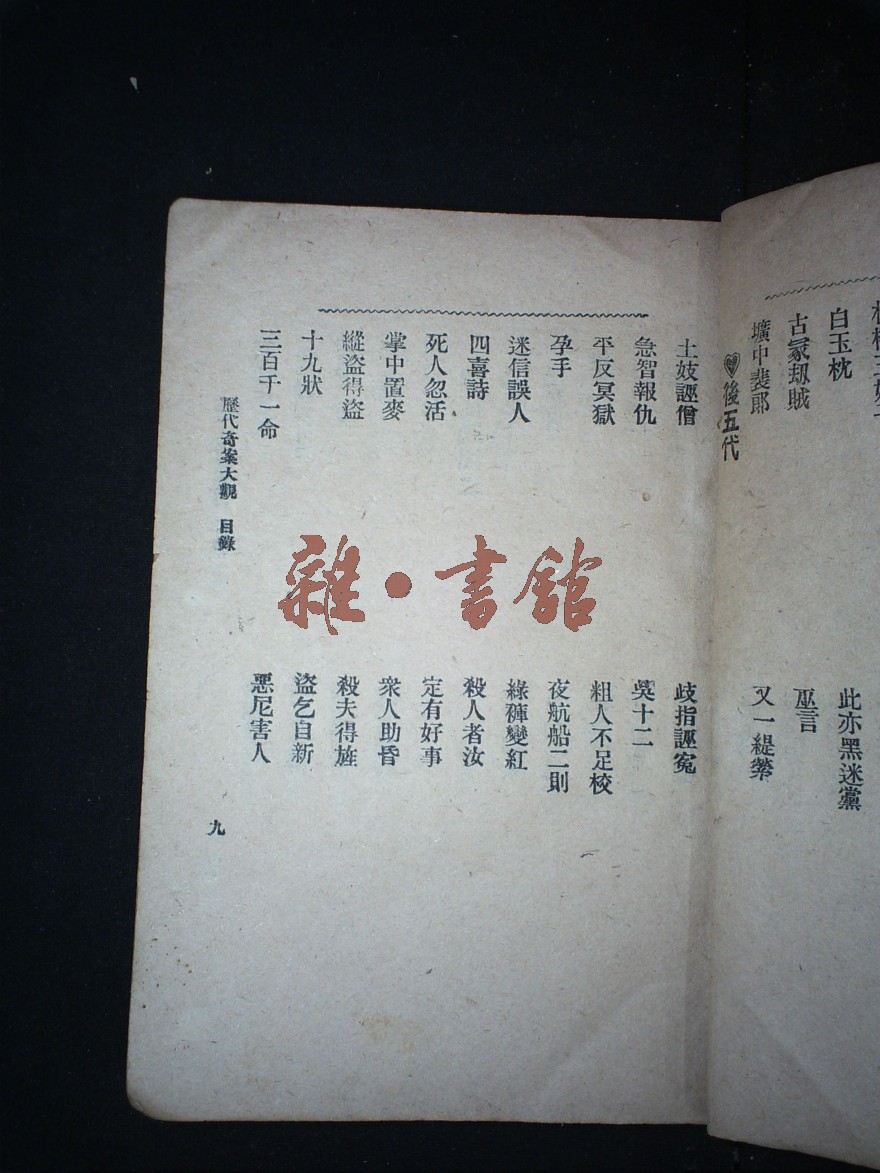 白玉枕
此亦黑迷黨
古冢刼賊
巫言
壙中裴郎
又一緹縈
後五代
土妓誣僧
歧指誣冤
急智報仇
吳十二
平反冥獄
粗人不足校
孕手
夜航船二則
迷信誤人
綠褲變紅
四喜詩
殺人者汝
死人忽活
定有好事
掌中置麥
衆人助昏
縱盜得盜
殺夫得旌
十九狀
盜乞自新
三百千一命
惡尼害人
歷代奇案大觀 目錄
九
雜·書館